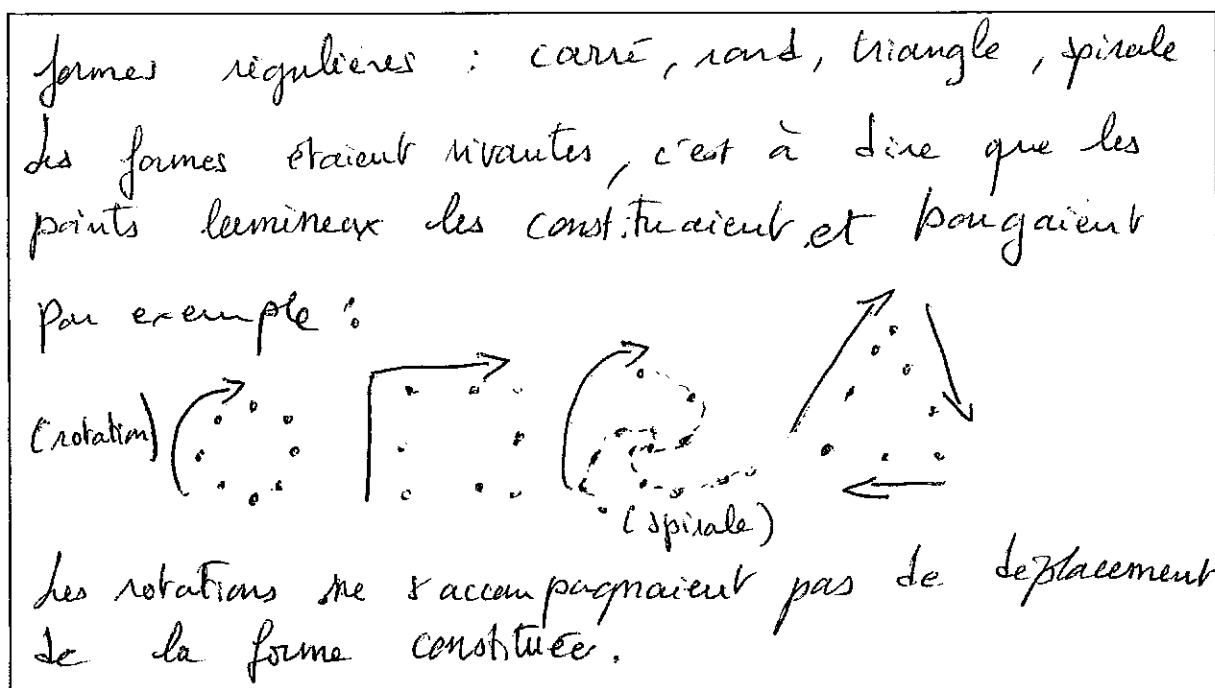 formes régulières : carré, rond, triangle, spirale
Les formes étaient vivantes, c'est à dire que les
points lumineux les constituaient et bougaient
par exemple :
(rotation)
(spirale)
Les rotations ne s'accompagnaient pas de deplacement
de la forme constituée.